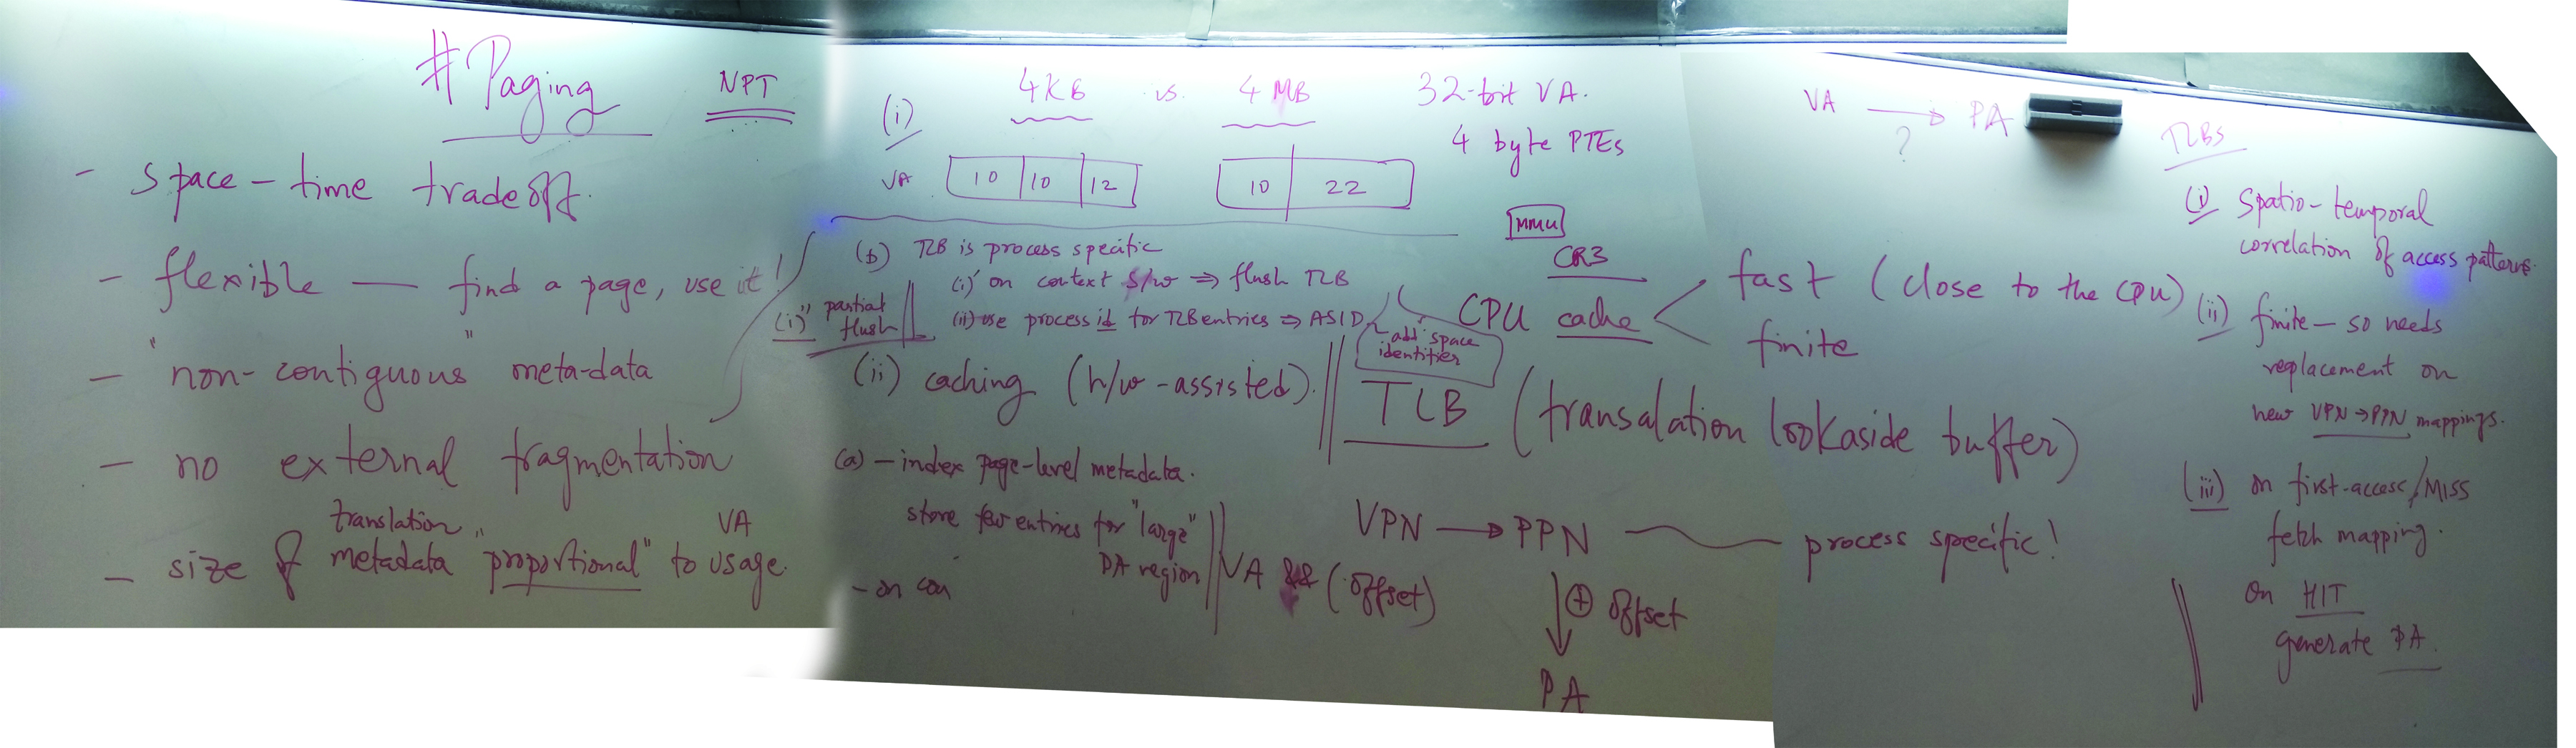 # Paging
NPT
- space-time tradeoff.
- flexible — find a page, use it!
- "non-contiguous" meta-data
- no external fragmentation
- size of translation metadata "proportional" to VA usage.
(i) 4KB vs. 4 MB
32-bit VA.
4 byte PTEs
VA 10 10 12
10 22
(b) TLB is process specific
(i)' on context s/w ⇒ flush TLB
(i)" partial flush
(ii) use process id for TLB entries ⇒ ASID
add. space
identifier
(ii) caching (h/w-assisted).
(a) - index page-level metadata.
store few entries for "large"
PA region
- on con
MMU
CR3
CPU cache
fast (close to the CPU)
finite
TLB (transalation lookaside buffer)
VPN → PPN
process specific!
VA && (offset)
⊕ offset
PA
VA → PA
?
TLBs
(i) Spatio-temporal
correlation of access patterns.
(ii) finite - so needs
replacement on
new VPN→PPN mappings.
(iii) on first-access/MISS
fetch mapping.
on HIT
generate PA.